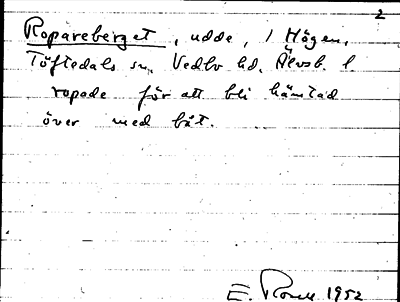 2
Ropareberget, udde, i Högen,
Töftedals sn, Vedbo hd, Älvsb. l.
ropade för att bli hämtad
över med båt.
E. 1952